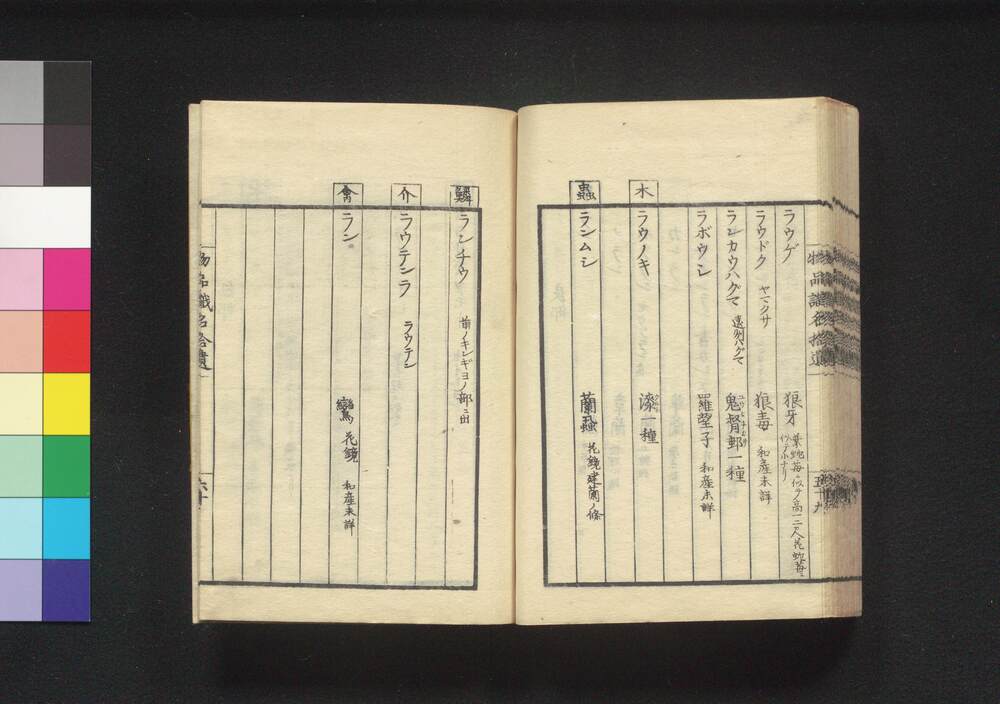 物品識名拾遺
五十九
ラウゲ 狼牙 葉蛇苺ニ似テ高一二尺花蛇苺ニ
似テ小ナリ
ラウドク ヤマクサ 狼毒 和産未詳
ランカウハグマ 遠州ハグマ 鬼督郵一種
ラボウシ 羅望子 和産未詳
木
ラウノキ 漆一種
蟲
ランムシ 蘭蝨 花鏡建蘭ノ條
鱗
ランチウ 前ノキンギヨノ部ニ出
介
ラウテンラ ラウテン
禽
ラン 鸞 花鏡 和産未詳
物品識名拾遺
六十